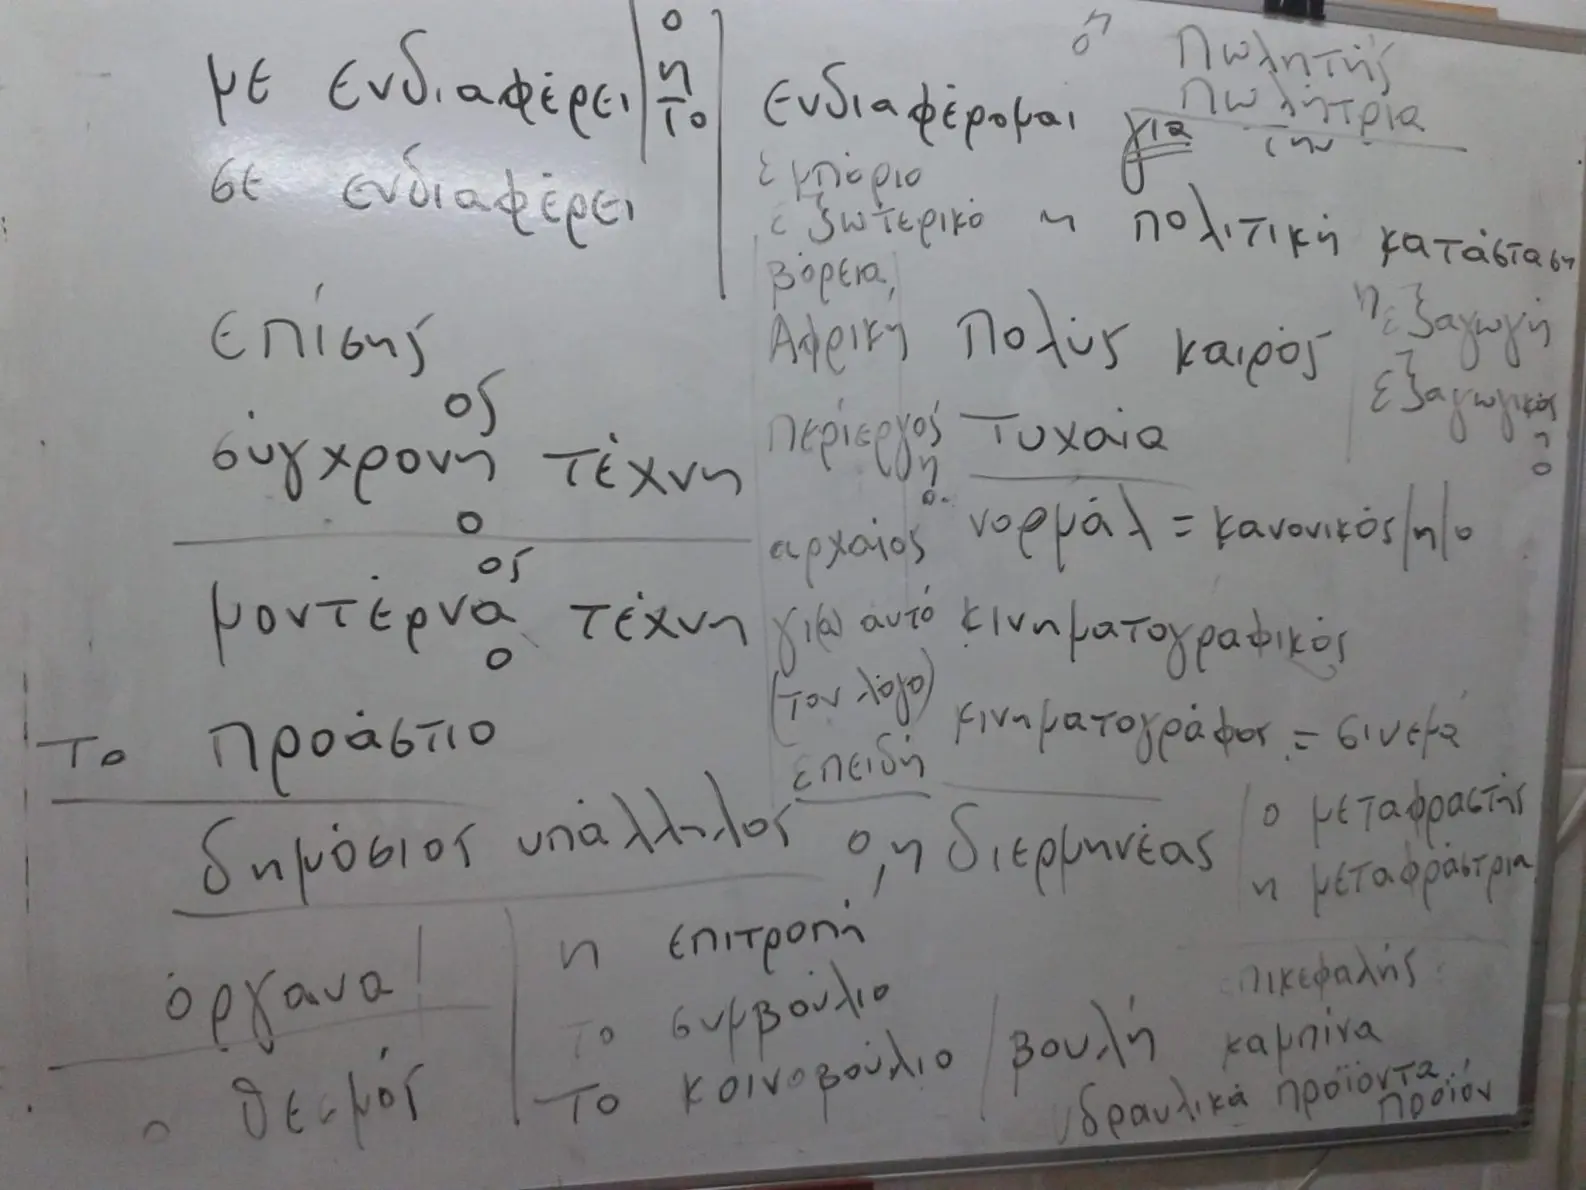 με ενδιαφέρει | ο
η
το
σε ενδιαφέρει
επίσης
ος
σύγχρονη τέχνη
ο
ος
μοντέρνα τέχνη
ο
το προάστιο
δημόσιος υπάλληλος
όργανα
ο θεσμός
ο η Πωλητής
Πωλήτρια
ενδιαφέρομαι για την
η πολιτική κατάσταση
εμπόριο
εξωτερικό
βόρεια
Αφρική
περίεργος
η
ο
αρχαίος
γι(α) αυτό
(τον λόγο)
επειδή
πολύς καιρός
η εξαγωγή
εξαγωγικός
η
ο
τυχαία
νορμάλ = κανονικός/η/ο
κινηματογραφικός
κινηματογράφος = σινεμά
ο, η διερμηνέας
ο μεταφραστής
η μεταφράστρια
η επιτροπή
το συμβούλιο
το κοινοβούλιο / βουλή
πικεφαλής
καμπίνα
υδραυλικά προϊόντα
προϊόν